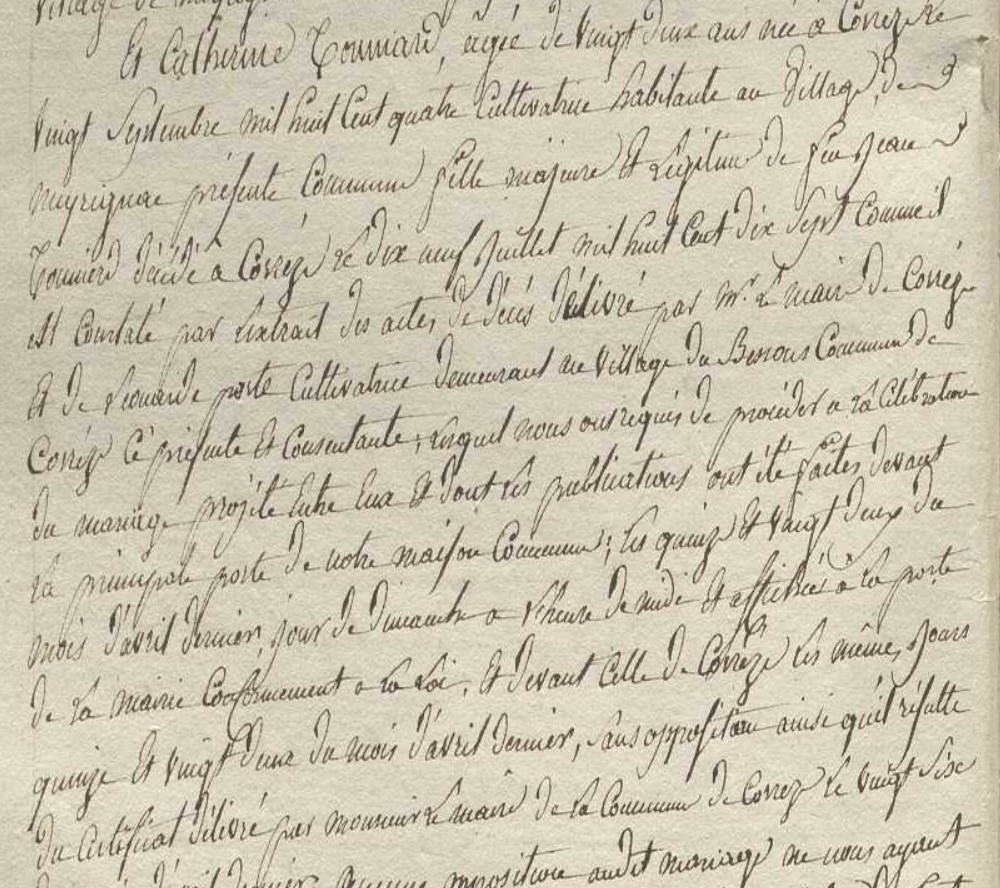 village de meyrignac
Et Catherine Toumieu, agée de vingt deux ans née à Correze le
vingt Septembre mil huit Cent quatre Cultivatrice habitante au Village de
meyrignac présente Commune fille majeure Et Légitime de feu Jean
décédé à Corrèze le dix neuf Juillet mil huit Cent dix Sept Comme il
est Constaté par L'extrait des actes de décès délivré par Mr. Le maire de Corrèze
Et de Léonarde porte Cultivatrice demeurant au Village du Bessous Commune de
Corrèze Cé présente Et Consentante; Lesquel nous ont requis de procéder a La Célébration
du mariage projété Entre Eux Et dont Les publications ont été faites devant
La principale porte de notre maison Commune; Les quinze Et Vingt deux du
mois d'avril dernier, jour de dimanche a L'heure de midi Et affichée à La porte
de La mairie Conformement a La Loi, Et devant Celle de Corrèze Les même Jours
quinze Et Vingt deux du mois d'avril dernier, Sans opposition ainsi qu'il résulte
du Certificat délivré par monsieur Le maire de La Commune de Correze Le Vingt Six
d'avril dernier aucune opposition audit mariage ne nous ayant